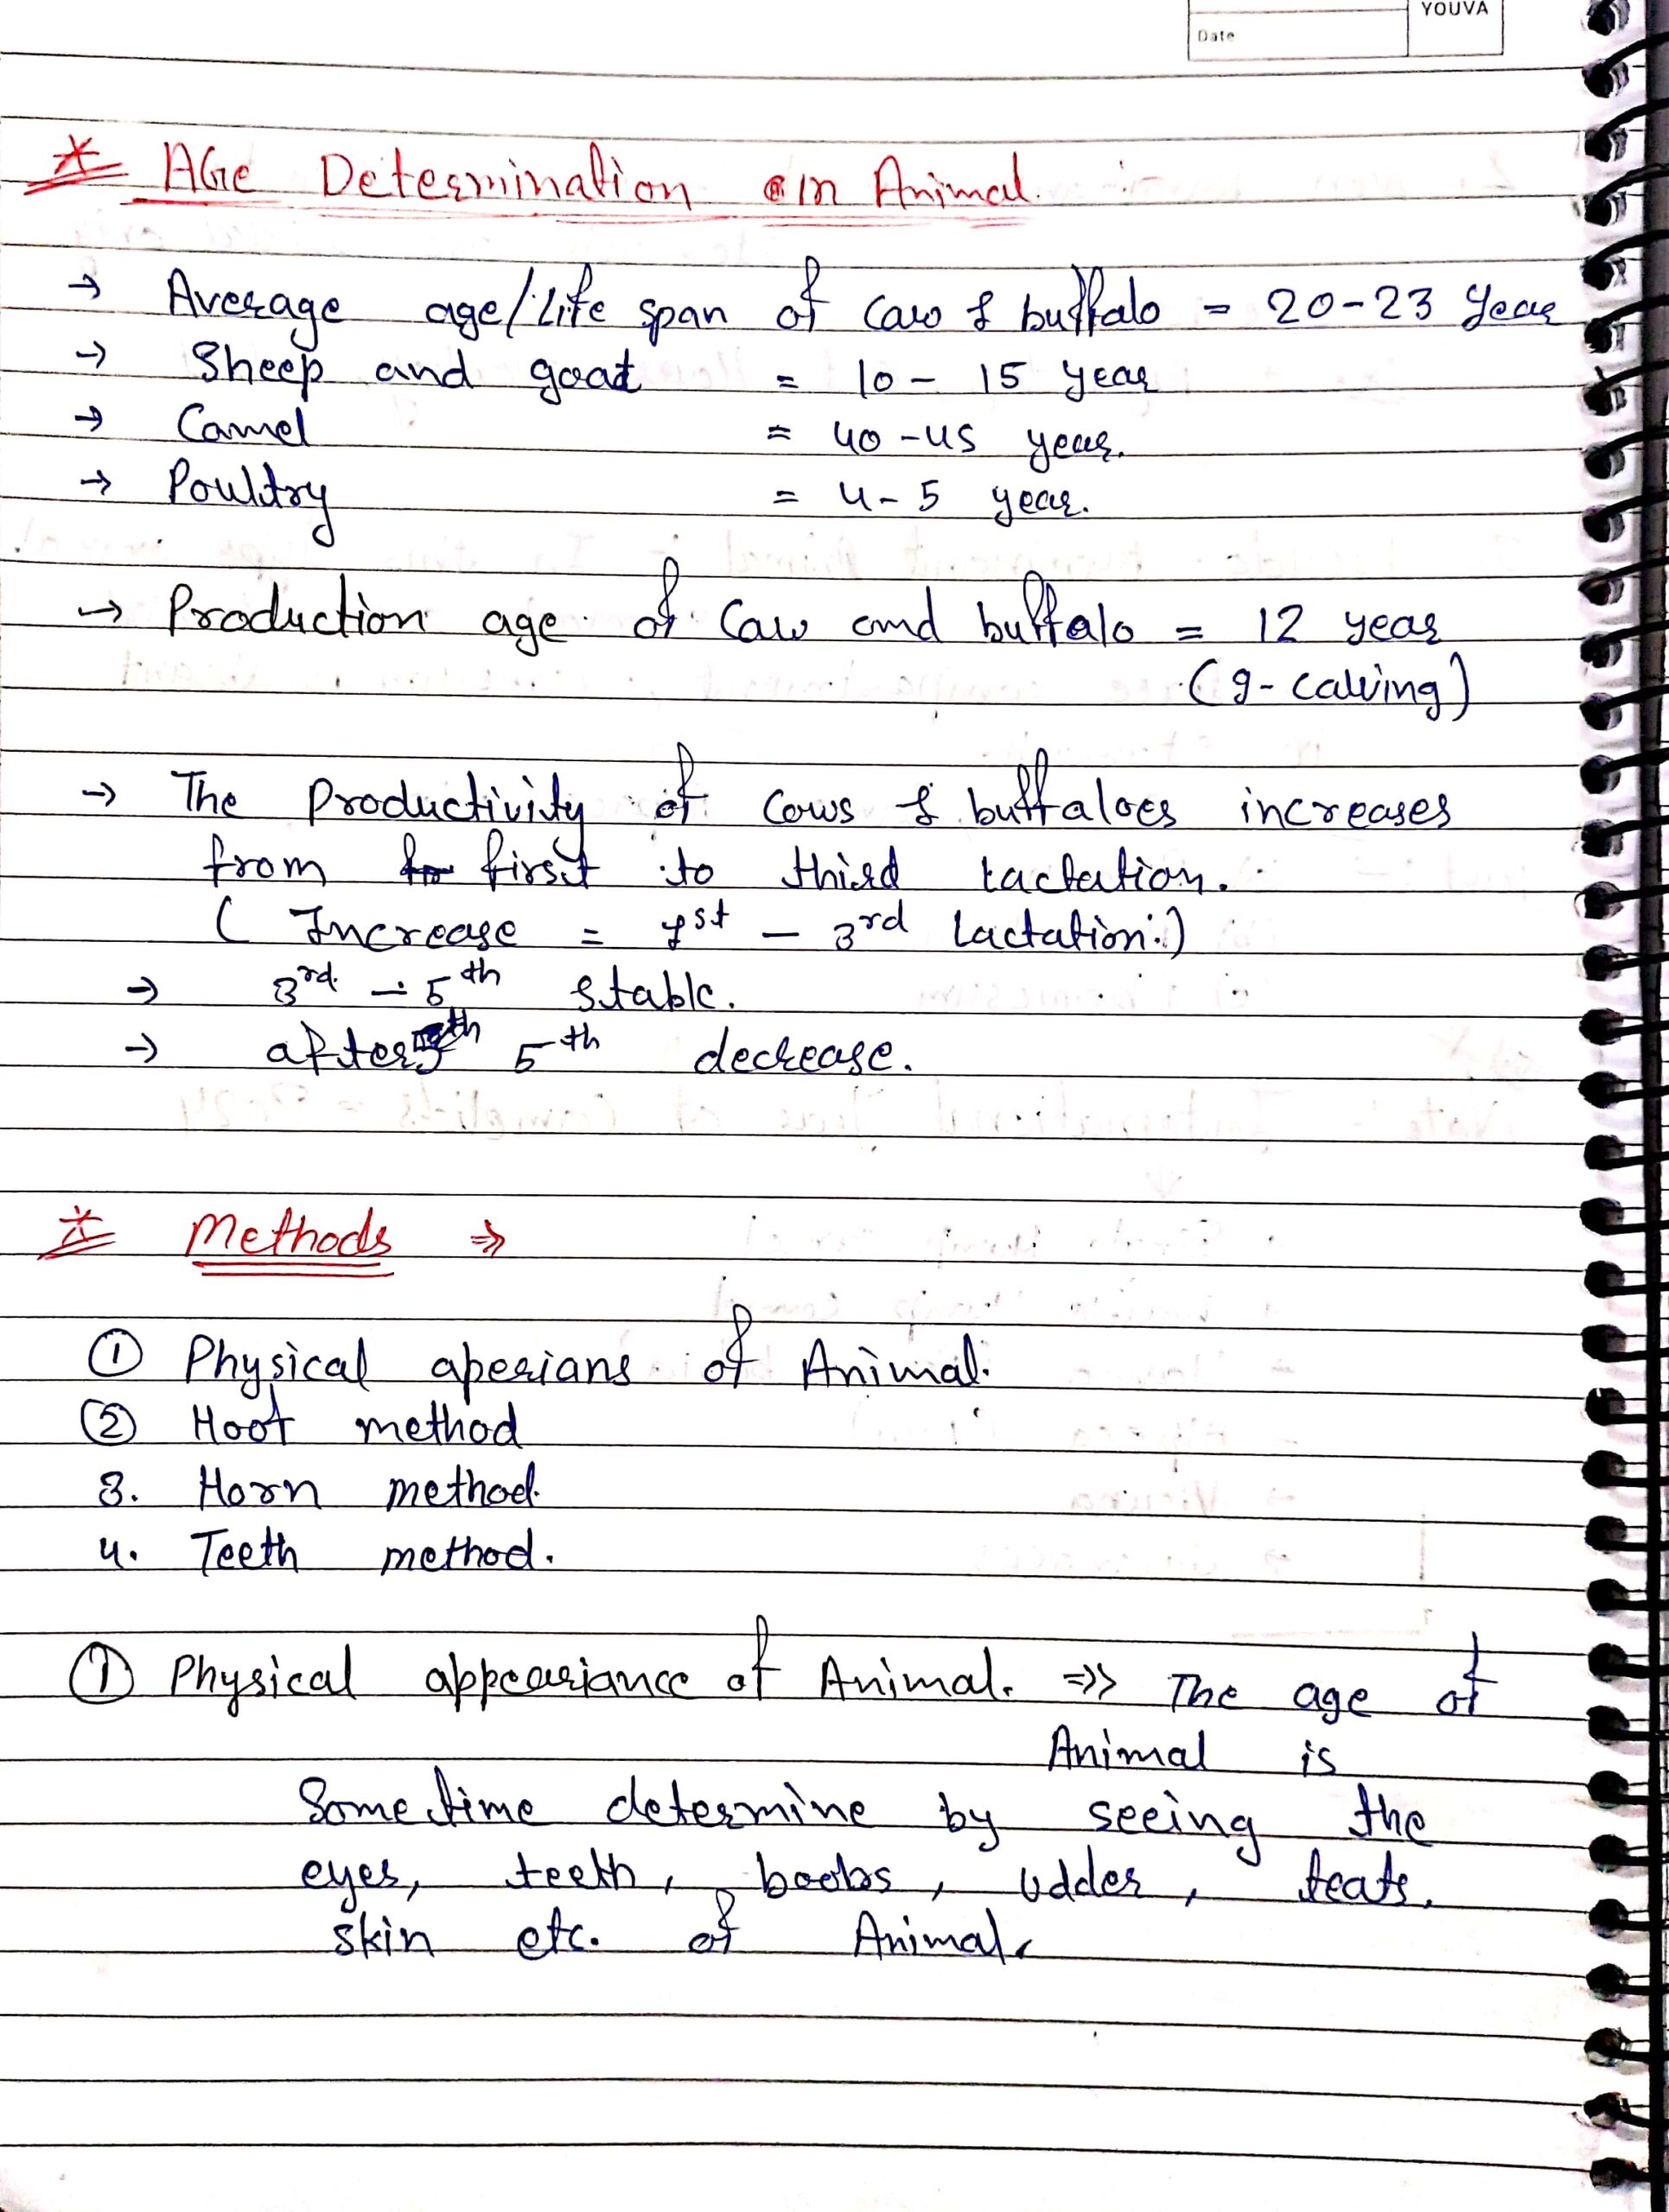 YOUVA
Date
* AGe Determination in Animal.
→ Average age/Life span of Cow & buffalo = 20-23 Year
→ Sheep and goat = 10 - 15 year
→ Camel = 40-45 year.
→ Poultry = 4-5 year.
→ Production age of Cow and buffalo = 12 year
(9-calving)
→ The Productivity of Cows & buffaloes increases
from first to third Lactation.
( Increase = 1st - 3rd Lactation.)
→ 3rd - 5th stable.
→ after 5th decrease.
* Methods ⇒
① Physical aperians of Animal.
② Hoof method
3. Horn method.
4. Teeth method.
① Physical appeariance of Animal. ⇒ The age of
Animal is
Sometime determine by seeing the
eyes, teeth, boobs, Udder, teats,
skin etc. of Animal.